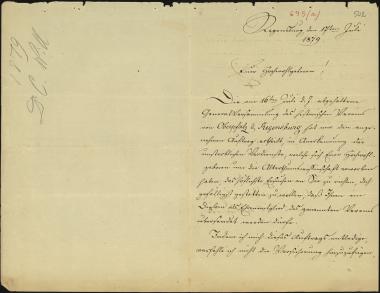 693/a)
502
Regensburg den 17ten Juli
1879
Euer Hochwohlgeboren!
Die am 16ten Juli d. J. abgehaltene
Generalversammlung des historischen Vereins
von Oberpfalz & Regensburg hat mir den ange-
nehmen Auftrag ertheilt, in Anerkennung der
Verdienste, welche sich Euer Hochwohl-
geboren um die Alterthumswissenschaft erworben
haben, das Ersuchen an Sie zu richten,
gefälligst gestatten zu wollen, daß Ihnen ein
Diplom als Ehrenmitglied des genannten Vereins
übersendet werden dürfe.
Indem ich mich dieses Auftrags entledige,
unterlasse ich nicht die Versicherung hinzuzufügen,